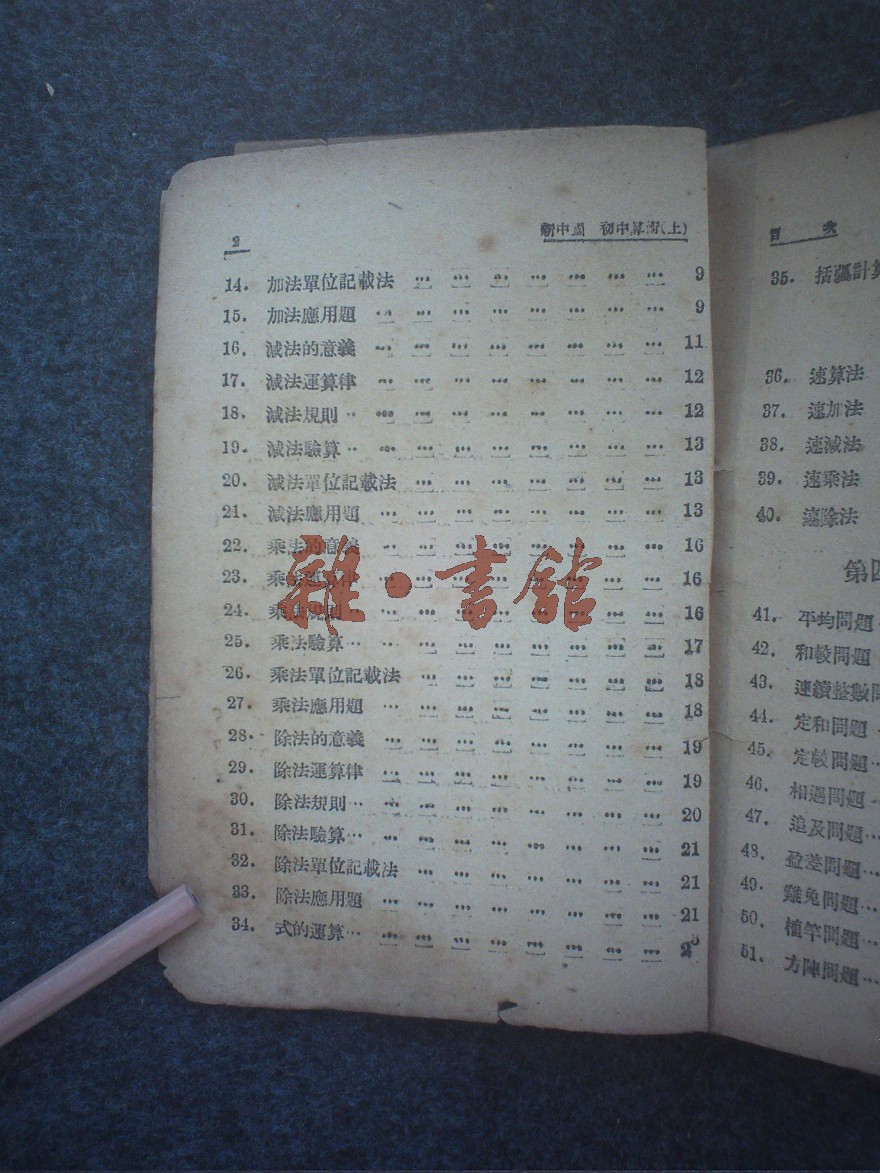 2
新中國 初中算術(上)
14. 加法單位記載法 … … … … … … … 9
15. 加法應用題 … … … … … … … … 9
16. 減法的意義 … … … … … … … … 11
17. 減法運算律 … … … … … … … … 12
18. 減法規則 … … … … … … … … … 12
19. 減法驗算 … … … … … … … … … 13
20. 減法單位記載法 … … … … … … … 13
21. 減法應用題 … … … … … … … … 13
22. 乘法的意義 … … … … … … … … 16
23. 乘法運算律 … … … … … … … … 16
24. 乘法規則 … … … … … … … … … 16
25. 乘法驗算 … … … … … … … … 17
26. 乘法單位記載法 … … … … … … … 18
27. 乘法應用題 … … … … … … … … 18
28. 除法的意義 … … … … … … … … 19
29. 除法運算律 … … … … … … … … 19
30. 除法規則 … … … … … … … … … 20
31. 除法驗算 … … … … … … … … … 21
32. 除法單位記載法 … … … … … … … 21
33. 除法應用題 … … … … … … … … 21
34. 式的運算 … … … … … … … … … 25
雜·書館
目 次
35. 括弧計算
36. 速算法
37. 速加法
38. 速減法
39. 速乘法
40. 速除法
第四
41. 平均問題
42. 和較問題
43. 連續整數問
44. 定和問題
45. 定較問題
46. 相遇問題
47. 追及問題
48. 盈差問題
49. 雞兔問題
50. 植竿問題
51. 方陣問題